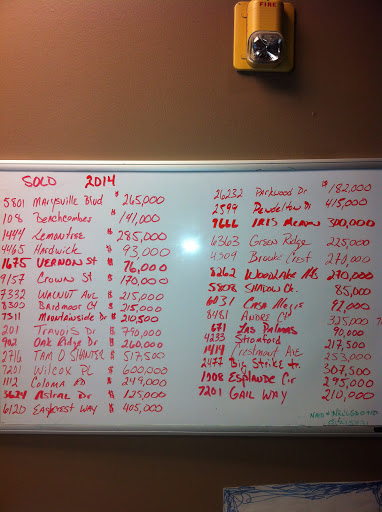 FIRE
SOLD 2014
5801 Marysville Blvd $265,000
108 Beachcomber $ 191,000
1444 Lemontree $ 285,000
4465 Hardwick $ 93,000
1675 VERNON St $ 76,000
9157 Crown St $ 170,000
7332 WALNUT Ave $ 215,000
Bardmoor Ct $ 215,000
7311 Mountainside Dr $ 210,500
201 Travois Dr $ 790,000
902 Oak Ridge Dr $ 260,000
2716 TAM O SHANTER $ 517,500
7201 Wilcox PL $ 600,000
1112 Coloma Rd $ 249,000
5624 Astral Dr $ 125,000
6120 Eastcrest WAY $ 405,000
26232 Parkwood Dr $182,000
2599 Pendelton Dr 415,000
9666 IRIS Meadow 300,000
43603 Green Ridge 225,000
4509 Brooke Crest 270,000
8262 Woodlake Hills 290,000
5808 Shadow Ct. 85,000
6031 Casa Alegre 92,000
8481 Andre Ct 325,000
671 Las Palmas 90,000
4233 Stratford 217,500
1414 Crestmont Ave 253,000
2477 Big Strike tr. 307,500
1908 Esplande Cir 295,000
7201 GAIL WAY 210,000